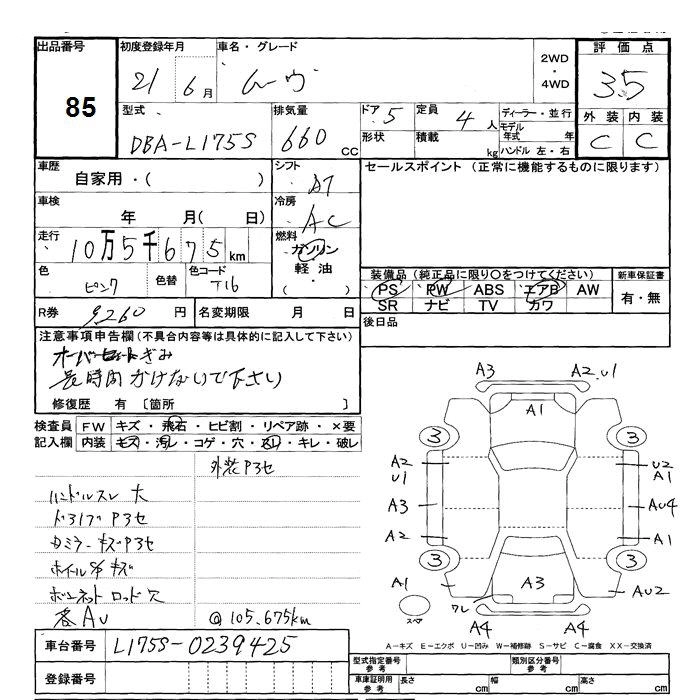 出品番号
85
初度登録年月
21 6月
車名・グレード
ムーヴ
2WD
・
4WD
評価点
3.5
外装 内装
C C
型式
DBA-L175S
排気量
660 CC
ドア 5
定員 4人
形状
積載 kg
ディーラー・並行
モデル年式 年
ハンドル 左・右
車歴
自家用・( )
シフト
AT
セールスポイント (正常に機能するものに限ります)
車検
年 月( 日)
冷房
AC
走行
10万5千675km
燃料
ガソリン
軽油・
( )
色
ピンク
色替
色コード
T16
装備品 (純正品に限り○をつけてください)
新車保証書
PS PW ABS エアB AW
有・無
SR ナビ TV カワ
R券 9260円
名変期限 月 日
後日品
注意事項申告欄(不具合内容等は具体的に記入して下さい)
オーバーヒートぎみ
長時間かけないで下さい
修復歴 有 〔箇所 〕
検査員 FW キズ・飛石・ヒビ割・リペア跡・×要
記入欄 内装 キズ・汚レ・コゲ・穴・スリ・キレ・破レ
外装P3セ
ハンドルスレ 大
P3セ
キズP3セ
ホイルS/Pキズ
ボンネット ロッド穴
各AU
@105.675km
A3 A2.U1
A1
3 3
A2
U1
U2
A1
A3
AU4
A2
A1
3 3
A1
A3
AU2
スペア
ワレ
A4 A4
A-キズ E-エクボ U-凹み W-補修跡 S-サビ C-腐食 XX-交換済
車台番号 L175S-0239425
登録番号
型式指定番号 参考
類別区分番号 参考
車庫証明用 参考
長さ cm 幅 cm 高さ cm